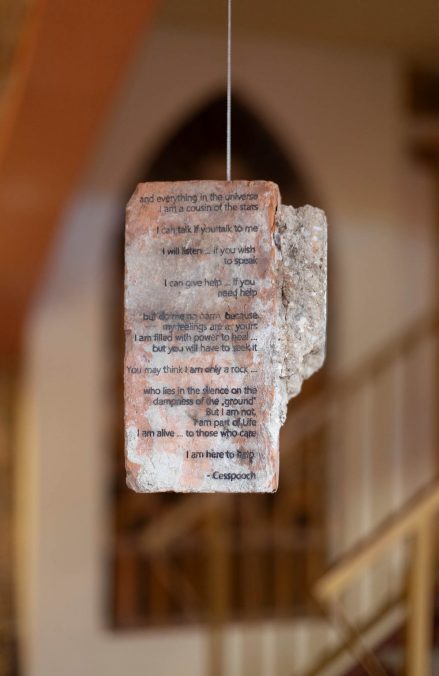 and everything in the universe
I am a cousin of the stars
I can talk if you talk to me
I will listen ... if you wish
to speak
I can give help ... if you
need help
but do me no harm, because
my feelings are as yours
I am filled with power to heal ...
but you will have to seek it
You may think I am only a rock ...
who lies in the silence on the
dampness of the „ground"
But I am not,
I am part of Life
I am alive ... to those who care
I am here to help
- Cesspooch